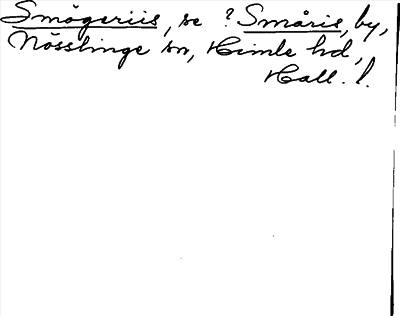 Smögeriis, se ? Småris, by,
Nösslinge sn, Himle hd,
Hall. l.